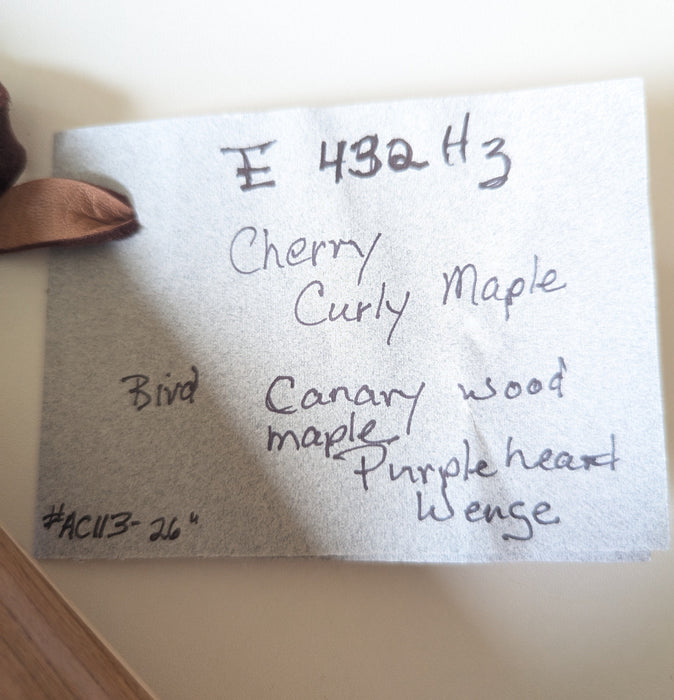 E 432 Hz
Cherry
Curly Maple
Bird Canary wood
maple
Purple heart
Wenge
#AC113-26"